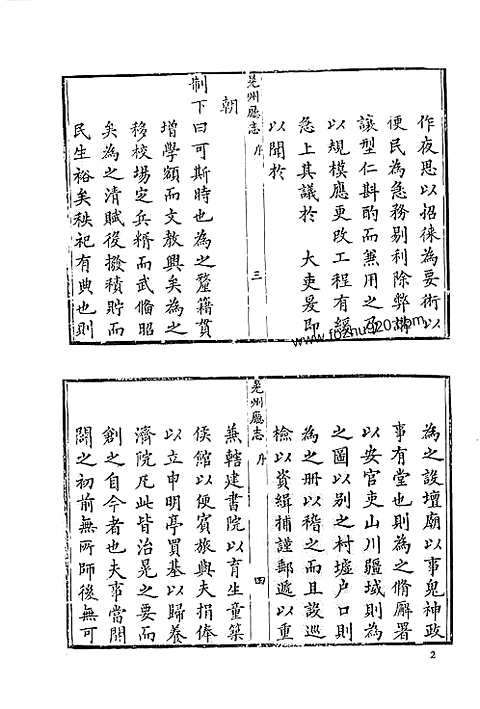 作夜思以招徠為要術以
便民為急務剔利除弊
讓型仁斟酌而兼用之乃
以規模應更改工程有緩
急上其議於　大吏爰即
以聞於
晃州廳志　序　三
朝
制下曰可斯時也為之釐籍貫
增學額而文教興矣為之
移校場定兵糈而武備昭
矣為之清賦役撥積貯而
民生裕矣秩祀有典也則
www.fozhu920.com
為之設壇廟以事鬼神政
事有堂也則為之脩廨署
以安官吏山川疆域則為
之圖以別之村墟户口則
為之冊以稽之而且設巡
檢以資緝捕謹郵遞以重
晃州廳志　序　四
蕪轄建書院以育生童築
侯館以便賓旅與夫捐俸
以立申明亭買基以歸養
濟院凡此皆治晃之要而
創之自今者也夫事當開
闢之初前無所師後無可
2